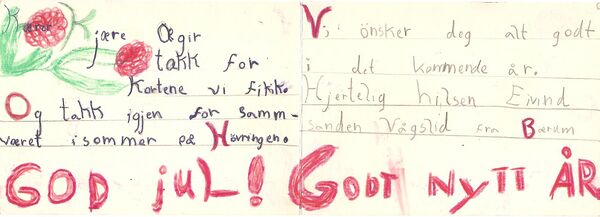 Kjære
kjære Ægir
takk for
Kortene vi fikk.
Og takk igjen for samm-
været i sommer på Høvringen.
GOD jUL!
Vi ønsker deg alt godt
i det kommende år.
Hjertelig hilsen Eivind
sanden Vågslid fra Bærum
GODT NYTT ÅR